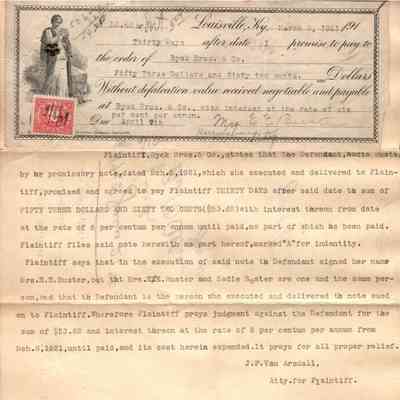 Louisville, Ky. March 8, 1921 191
Thirty Days after date I promise to pay to
the order of Byck Bros. & Co.
Fifty Three Dollars and Sixty two cents. Dollars
Without defalcation, value received negotiable and payable
at Byck Bros. & Co., with interest at the rate of six
per cent per annum.
Due April 7th Mrs E. E.
Plaintiff, Byck Bros. & Co., states that the Defendant, Sadie
by he promissory note, dated Mch. 8, 1921, which she executed and delivered to Plain-
tiff, promised and agreed to pay Plaintiff THIRTY DAYS after said date th sum of
FIFTY THREE DOLLARS AND SIXTY TWO CENTS ($53.62) with interest thereon from date
at the rate of 6 per centum per annum until paid, no part of which has been paid.
Plaintiff files said note herewith as part hereof, marked "A" for indentity.
Plaintiff says that in the execution of said note th Defendant signed her name
Mrs. E.E. Huster, but tht Mrs. E.E. Huster and Sadie are one and the same per-
son, and that th Defendant is the person who executed and delivered th note sued
on to Plaintiff. Wherefore Plaintiff prays judgment against the Defendant for the
sum of $53.62 and interest thereon at the rate of 6 per centum per annum from
Mch. 8, 1921, until paid, and its cost herein expended. It prays for all proper relief.
J. P. Van Arsdall,
Atty. for Plaintiff.